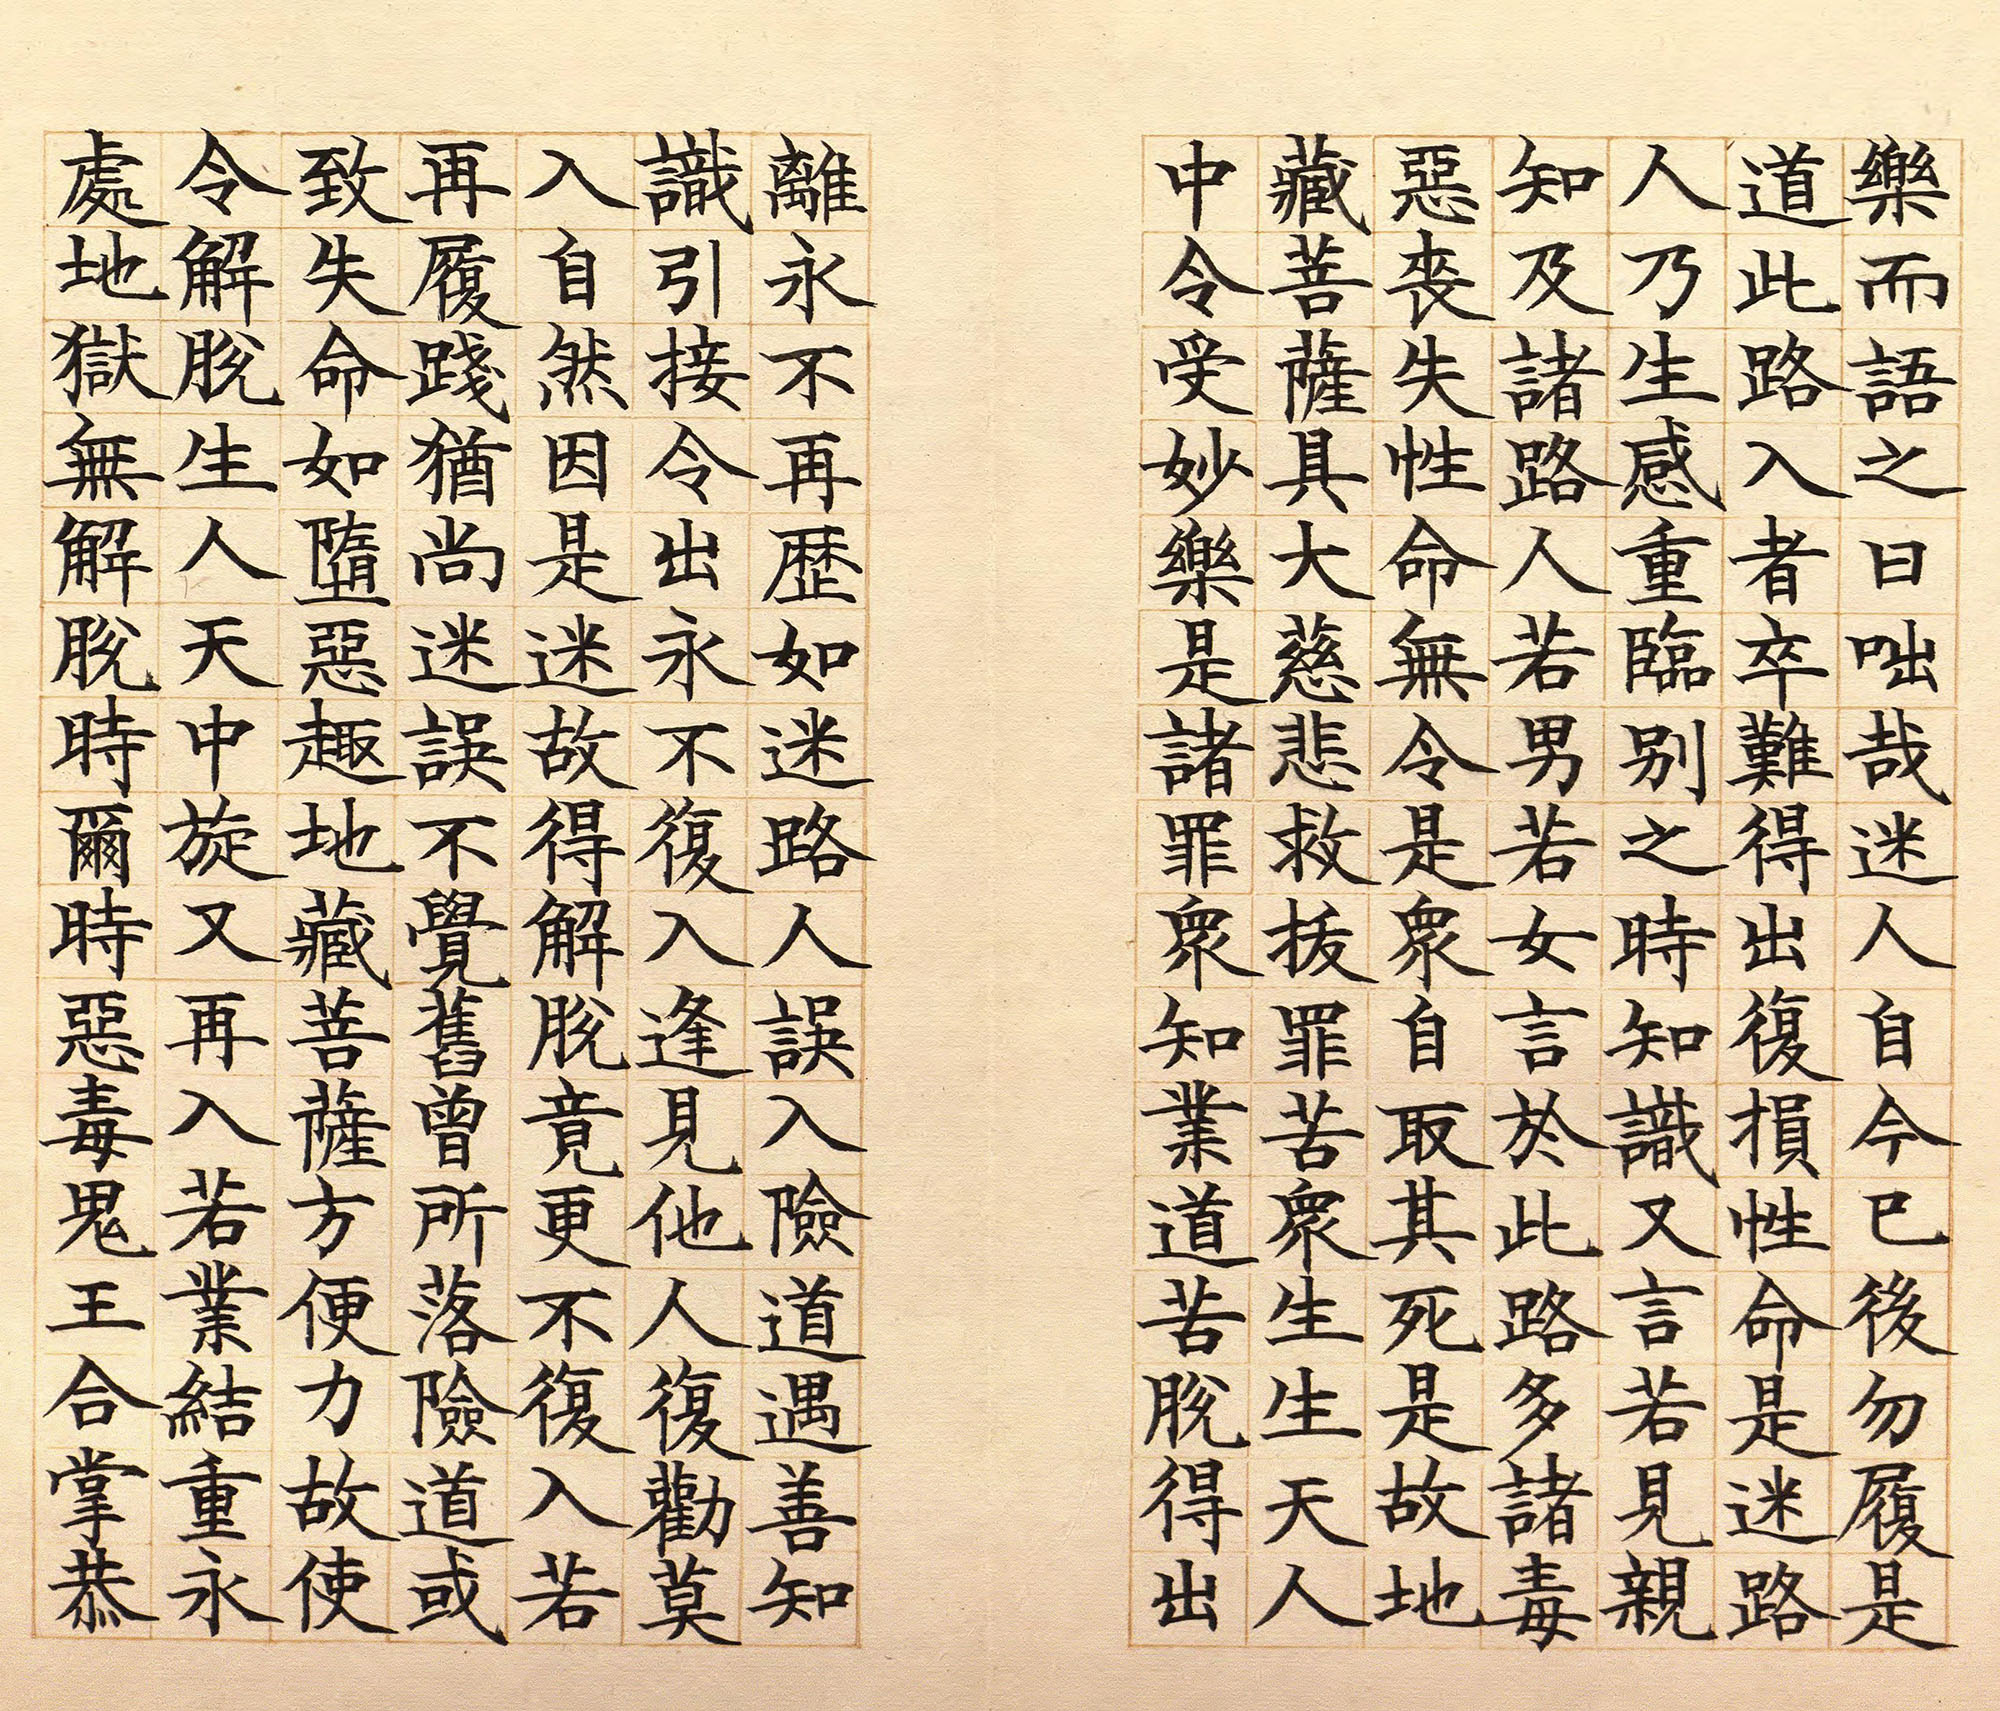 樂而語之曰咄哉迷人自今已後勿履是
道此路入者卒難得出復損性命是迷路
人乃生感重臨别之時知識又言若見親
知及諸路人若男若女言於此路多諸毒
惡喪失性命無令是衆自取其死是故地
藏菩薩具大慈悲救拔罪苦衆生生天人
中令受妙樂是諸罪衆知業道苦脫得出
離永不再歷如迷路人誤入險道遇善知
識引接令出永不復入逢見他人復勸莫
入自然因是迷故得解脫竟更不復入若
再履踐猶尚迷誤不覺舊曾所落險道或
致失命如墮惡趣地藏菩薩方便力故使
令解脫生人天中旋又再入若業結重永
處地獄無解脫時爾時惡毒鬼王合掌恭